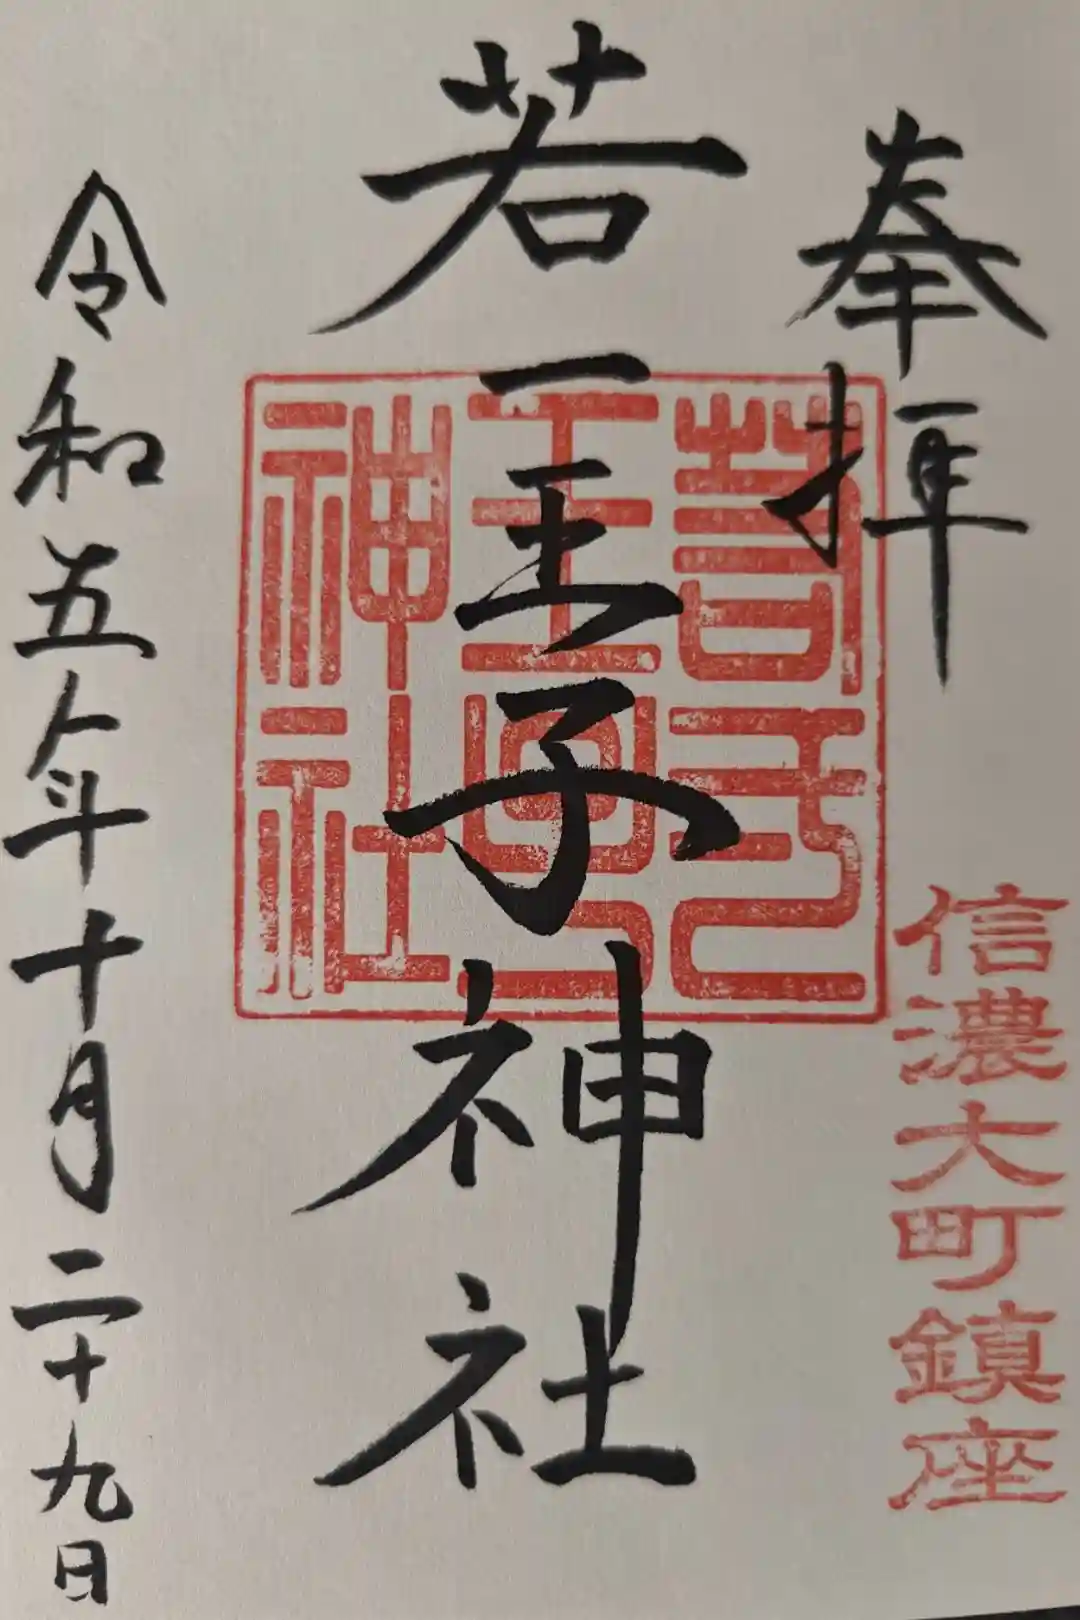 奉拝
信濃大町鎮座
若一王子神社
令和五年十月二十九日